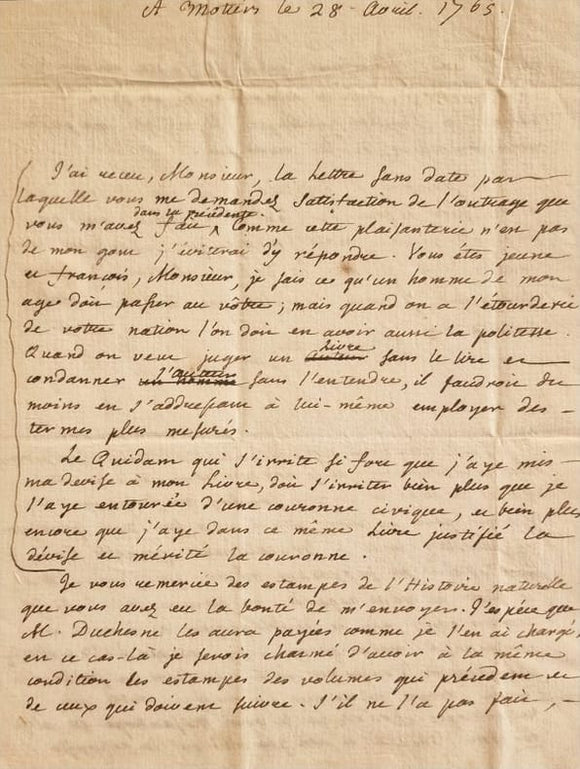 A Motiers le 28 Avril. 1765.
J'ai receu, Monsieur, la Lettre sans date par
laquelle vous me demandez satisfaction de l'outrage que
dans la précédente.
vous m'avez fait ^ Comme cette plaisanterie n'en pas
de mon gout j'éviterai d'y répondre. Vous étes jeune
et françois, Monsieur, je sais ce qu'un homme de mon
age doit passer au vôtre; mais quand on a l'étourderie
de votre nation l'on doit en avoir aussi la politesse.
Livre
Quand on veut juger un auteur sans le lire et
l'auteur
condanner un homme sans l'entendre, il faudroit du
moins en s'addressant à lui-même employer des
termes plus mesurés.
Le Quidam qui s'irrite si fort que j'aye mis
ma devise à mon Livre, doit s'irriter bien plus que je
l'aye entourée d'une couronne civique, et bien plus
encore que j'aye dans ce même Livre justifié la
dévise et mérité la couronne.
Je vous remercie des estampes de l'Histoire naturelle
que vous avez eu la bonté de m'envoyer. J'espére que
M. Duchesne les aura payées comme je l'en ai chargé,
en ce cas-là je serois charmé d'avoir à la même
condition les estampes des volumes qui précédent et
de ceux qui doivent suivre. S'il ne l'a pas fait,